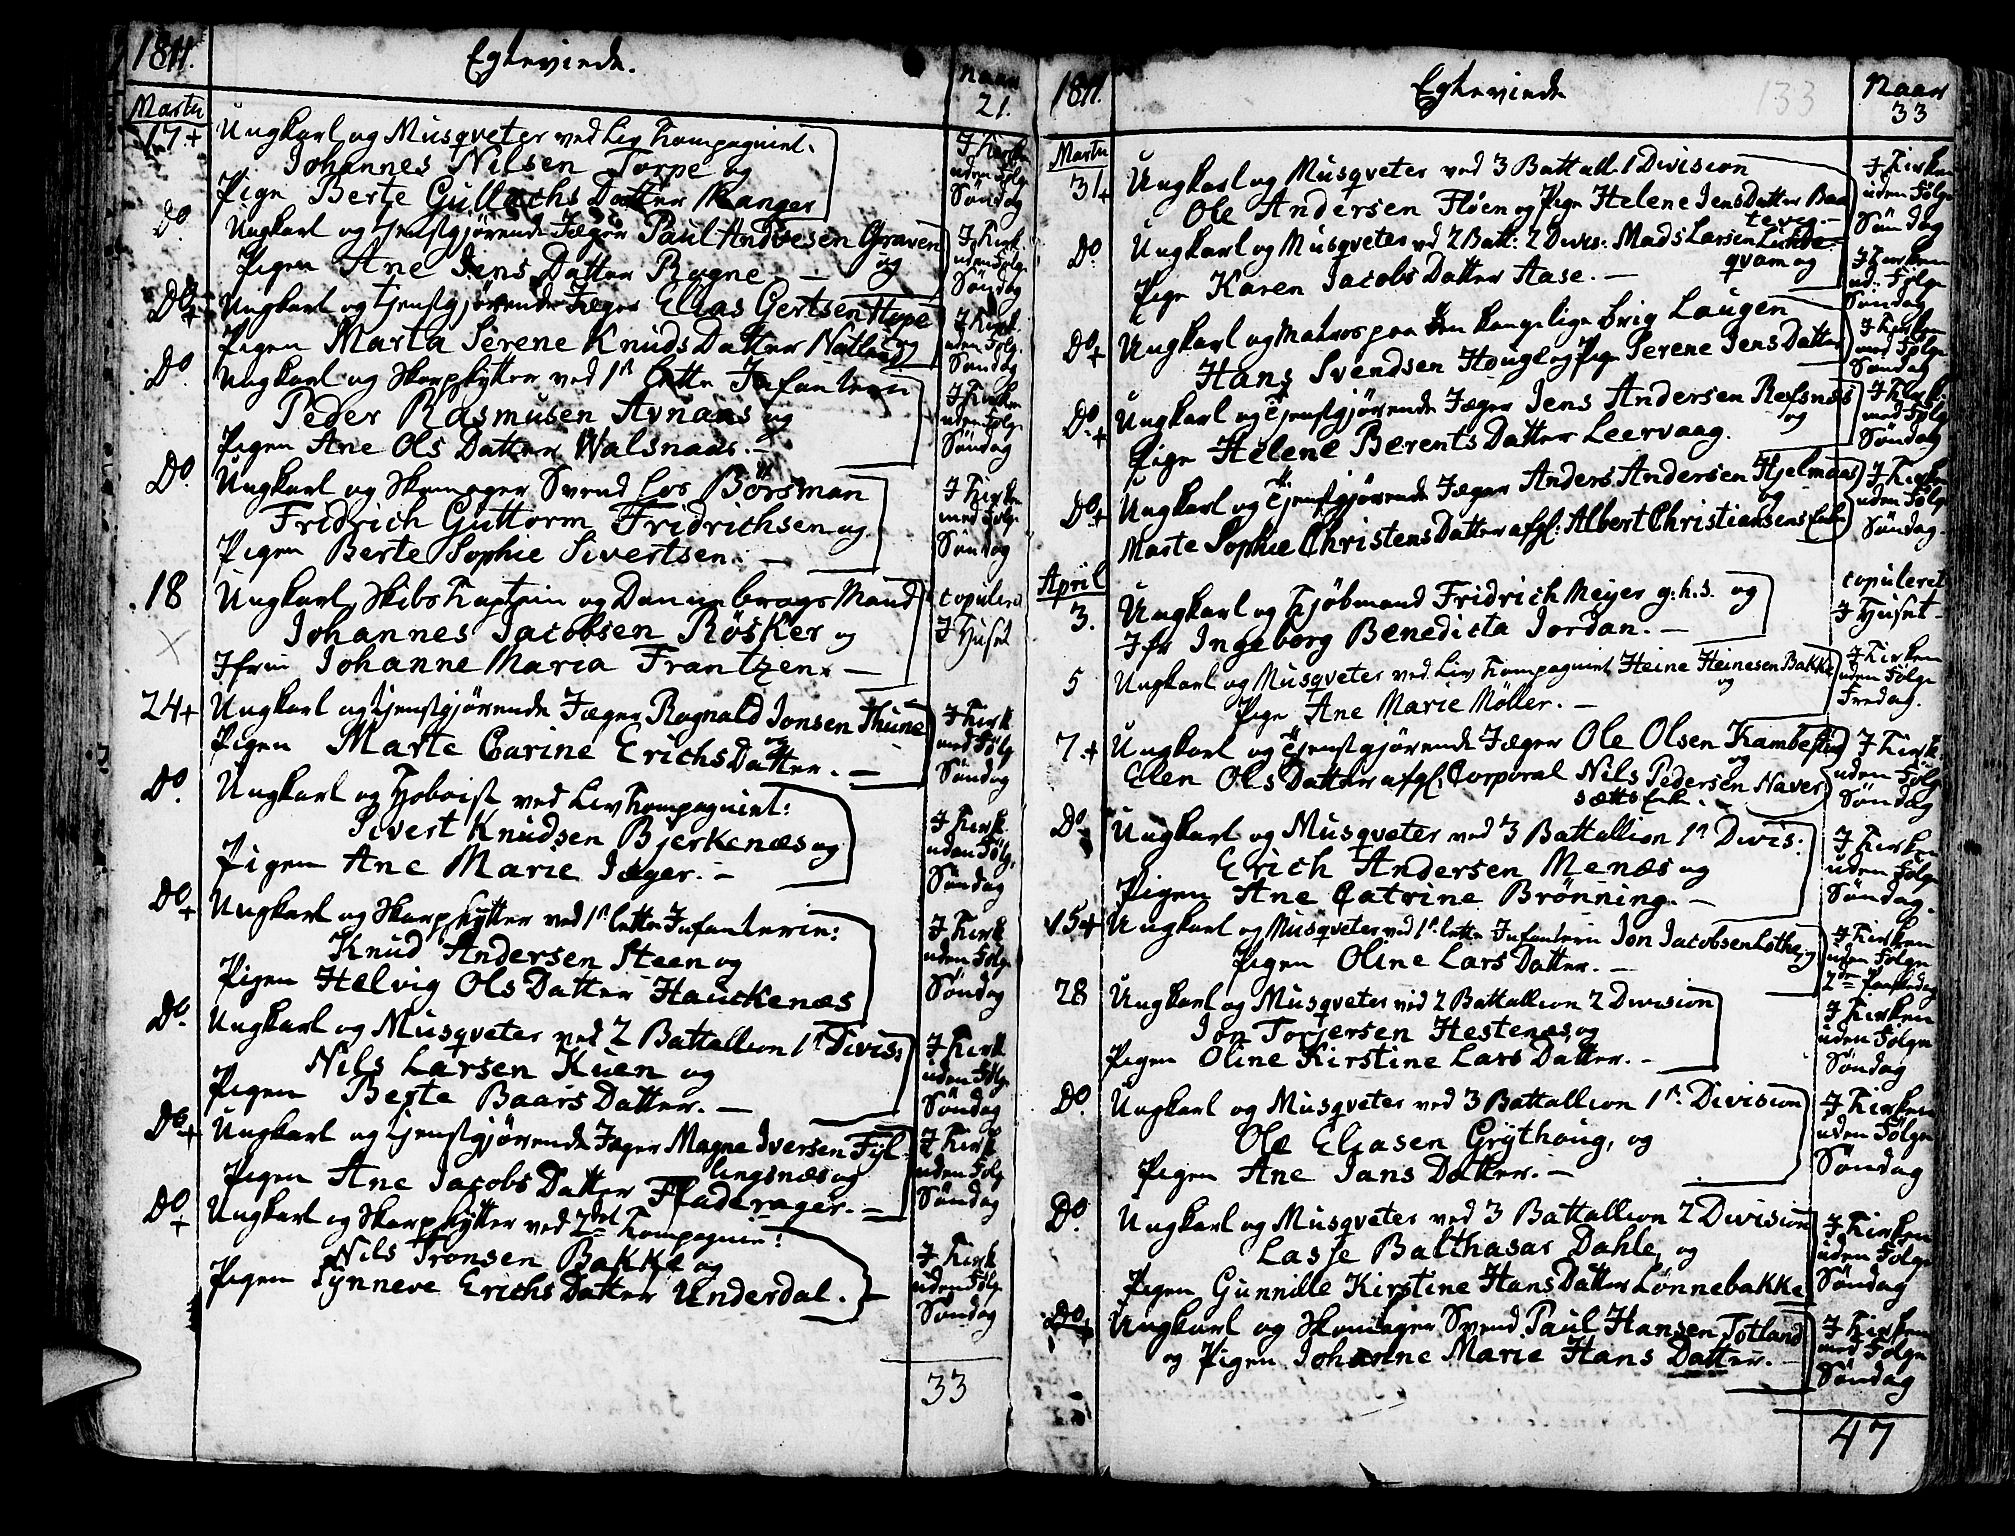 1811.
Egtevirde.
naar
21.
Martii
17.+
Ungkarl og Musqveter ved Liv Kompagniet.
Johannes Nilsen Torpe og
Pige Berte Gullachs Datter Manger
I Kirken
uden Følge
Søndag
Do.
Ungkarl og tjenstgjørende Jæger Paul Andresen Graven
og
Pigen Ane Jens Datter Rogne. —
I Kirk.
uden Følge
Søndag
Do +
Ungkarl og tjenstgjørende Jæger Elias Gertsen Hope
og
Pigen Marta Serene Knuds Datter Natland.
I Kirk.
uden Følg.
Søndag
Do.
Ungkarl og Skarpskytter ved 1ste lette Infanterie
Peder Rasmusen Avnaas og
Pigen Ane Ols Datter Walsnaas. —
I Kirken
uden Følge
Søndag
Do.
Ungkarl og Skomager Svend Los Börsman
Fridrich Guttorm Fridrichsen og
Pigen Berte Sophie Sivertsen. —
I Kirken
med Følge
Søndag
18
Ungkarl, Skibs Kaptein og Dannebrogs Mand
Johannes Jacobsen Rösker og
Jfru Johanne Maria Frantzen. —
copuleret
I Huset
24+
Ungkarl og tjenstgjørende Jæger Rognald Jonsen Thune
og
Pigen Marte Carine Erichs Datter. —
I Kirk
med Følg
Søndag
Do.
Ungkarl og Hoboist ved Liv Kompagniet:
Sivert Knudsen Bjerkenæs og
Pigen Ane Marie Jæger. —
I Kirk.
uden Følg.
Søndag
Do +
Ungkarl og Skarpskytter ved 1ste lette Infanterie:
Knud Andersen Steen og
Pigen Helvig Ols Datter Hauckenæs
I Kirk
uden Følge
Søndag
Do.
Ungkarl og Musqveter ved 2 Battallion 1ste Divis:
Nils Larsen Kuen og
Pigen Berte Baars Datter. —
I Kirk
uden Følg
Søndag
Do +
Ungkarl og tjenstgjørende Jæger Magne Iversen Fyl-
lingsnæs og
Pigen Ane Jacobs Datter Fladerager. —
I Kirk
uden Følg
Søndag
Do +
Ungkarl og Skarpskytter ved 2det Kompagnie:
Nils Tronsen Bakke og
Pigen Synneve Erichs Datter Underdal. —
I Kirk
uden Følg
Søndag
33
1811.
Egtevirde
133
Naar
33
Martii
31+
Ungkarl og Musqveter ved 3 Battall. 1 Division
Ole Andersen Fløen og Pige Helene Jens Datter Baa
tevig —
I Kirken
uden Følge
Søndag
Do.
Ungkarl og Musqveter ved 2 Batt: 2 Divis: Mads Larsen Linde-
qvam og
Pige Karen Jacobs Datter Aase. —
I Kirken
ud: Følge
Søndag
Do +
Ungkarl og Matros paa den kongelige Brig Laugen
Hans Svendsen Houge og Pige Serene Jens Datter
I Kirken
med Følge
Søndag
Do +
Ungkarl og Tjenstgjørende Jæger Jens Andersen Refsnæs
og
Pige Helene Berents Datter Leervaag.
I Kirk.
med Følg
Søndag
Do +
Ungkarl og Tjenstgjørende Jæger Anders Andersen Hjelmaas
og
Marte Sophie Christens Datter afgl: Albert Christiansens Enke
I Kirken
uden Følge
Søndag
April
3.
Ungkarl og Kjöbmand Fridrich Meyer g.h.s. og
Jfr Ingeborg Benedicta Jordan. —
copuleret
I Huset
5
Ungkarl og Musqveter ved Liv Kompagniet Heine Heinesen Bakke
og
Pige Ane Marie Möller. —
I Kirken
uden Følge
Fredag.
7+
Ungkarl og Tjenstgjørende Jæger Ole Olsen Kambestad
og
Elen Ols Datter afgl. Corporal Nils Pedersen Naver
sætts Enke. —
I Kirk
uden Følg
Søndag
Do
Ungkarl og Musqveter ved 3 Battallion 1ste Divis:
Erich Andersen Menæs og
Pigen Ane Catrine Brönning. —
I Kirken
uden Følge
Søndag.
15+
Ungkarl og Musqveter ved 1ste lette Infanteri Jon Jacobsen Lothe og
Pigen Oline Lars Datter. —
I Kirken
uden Følge
2den Paaskedag
28
Ungkarl og Musqveter ved 2 Battallion 2 Division
Jon Torjersen Hestenæs og
Pigen Oline Kirstine Lars Datter. —
I Kirken
uden Følge
Søndag
Do.
Ungkarl og Musqveter ved 3 Battallion 1ste Division
Ole Eliasen Grÿthoug, og
Pigen Ane Jans Datter. —
I Kirken
uden Følge
Søndag
Do.
Ungkarl og Musqveter ved 3 Battallion 2 Division
Lasse Balthasar Dahle, og
Pigen Gunnille Kirstine Hans Datter Lønnebakke
I Kirken
uden Følge
Søndag
Do +
Ungkarl og Skomager Svend Paul Hansen Totland
og Pigen Johanne Marie Hans Datter. —
I Kirken
med Følge
Søndag
47